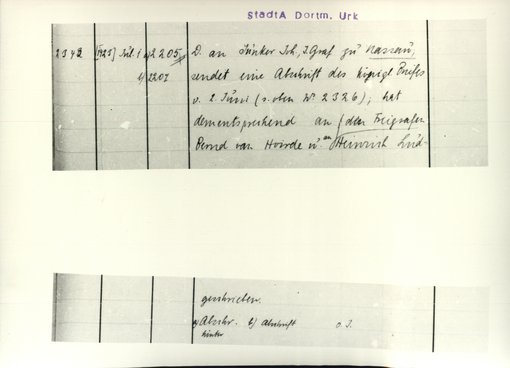 StadtA Dortm. Urk
2342 [1425] Juli 1 a) 2205
b) 2201
D. an Junker Joh., Graf zu Nassau,
sendet eine Abschrift des königl. Briefes
v. 2. Juni (s. oben Nr 2326); hat
dementsprechend an (den Freigrafen
Bernd van Hoirde u. an Heinrich Lüd-
geschrieben.
a) Abschr. b) Abschrift o. J.
hinter